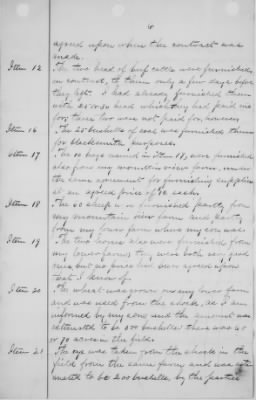 agreed upon when the contract was
made.
Item 12 The two head of beef cattle were furnished
on contract, to them only a few days before
they left. I had already furnished them
with 25 or 30 head which they had paid me
for; these two were not paid for, however
Item 16 The 25 bushels of coal was furnished them
for blacksmith purposes.
Item 17 The 10 hogs named in Item 18, were furnished
also from my mountain view farm, under
the same agreement for furnishing supplies
at an agreed price of each.
Item 18 The 60 sheep were furnished partly from
my mountain view farm and partly
from my lower farm where my son was
Item 19 The two horses also were furnished from
my lower farm; they were both very good
ones but no price had been agreed upon
that I know of.
Item 20 The wheat was grown on my lower farm
and was used from the shock, as I am
informed by my son, and the amount was
estimated to be bushels; there was
or acres in the field.
Item 21 The rye was taken from the shock in the
field from the same farm and was esti-
mated to be 200 bushels, by the parties